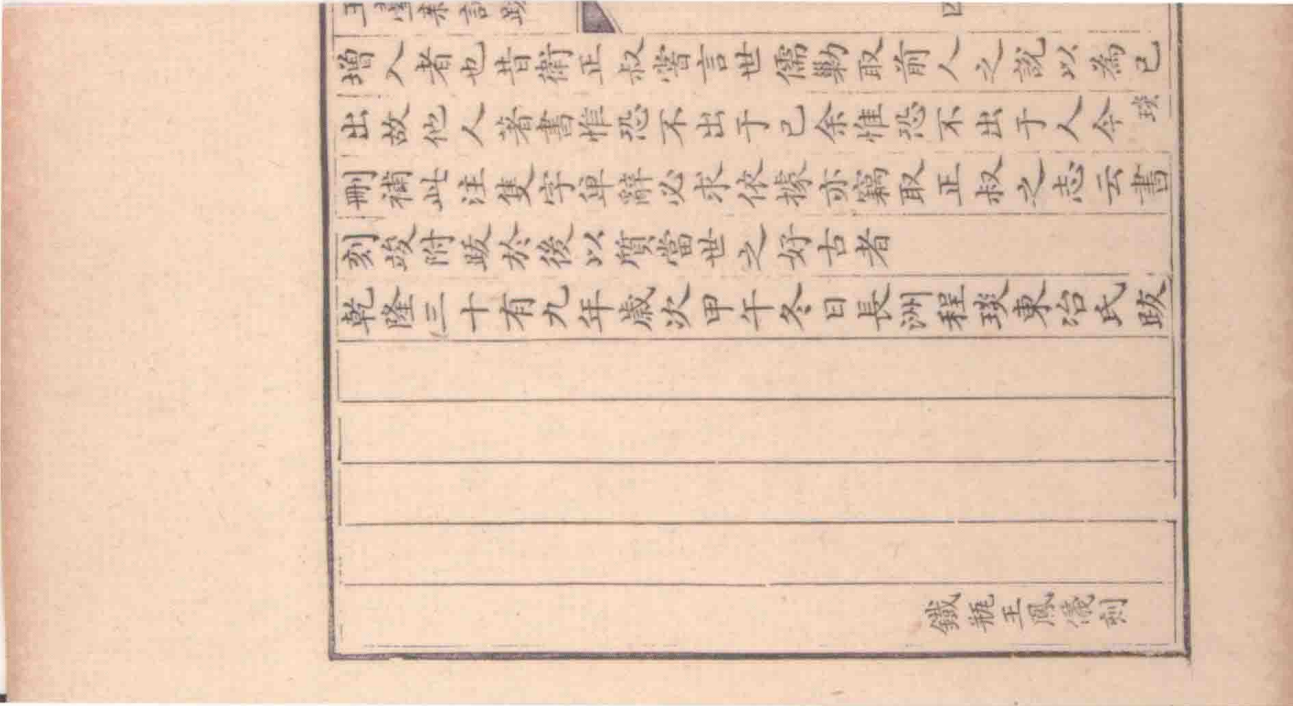 玉臺新詠跋
四
增入者也昔衛正叔嘗言世儒勦取前人之說以為己
出故他人著書惟恐不出于己余惟恐不出于人今琰
刪補此注隻字单辭必求依據亦竊取正叔之志云書
刻竣附跋於後以質當世之好古者
乾隆三十有九年歲次甲午冬日長洲程琰東冶氏跋
鐵瓶王鳳儀刻